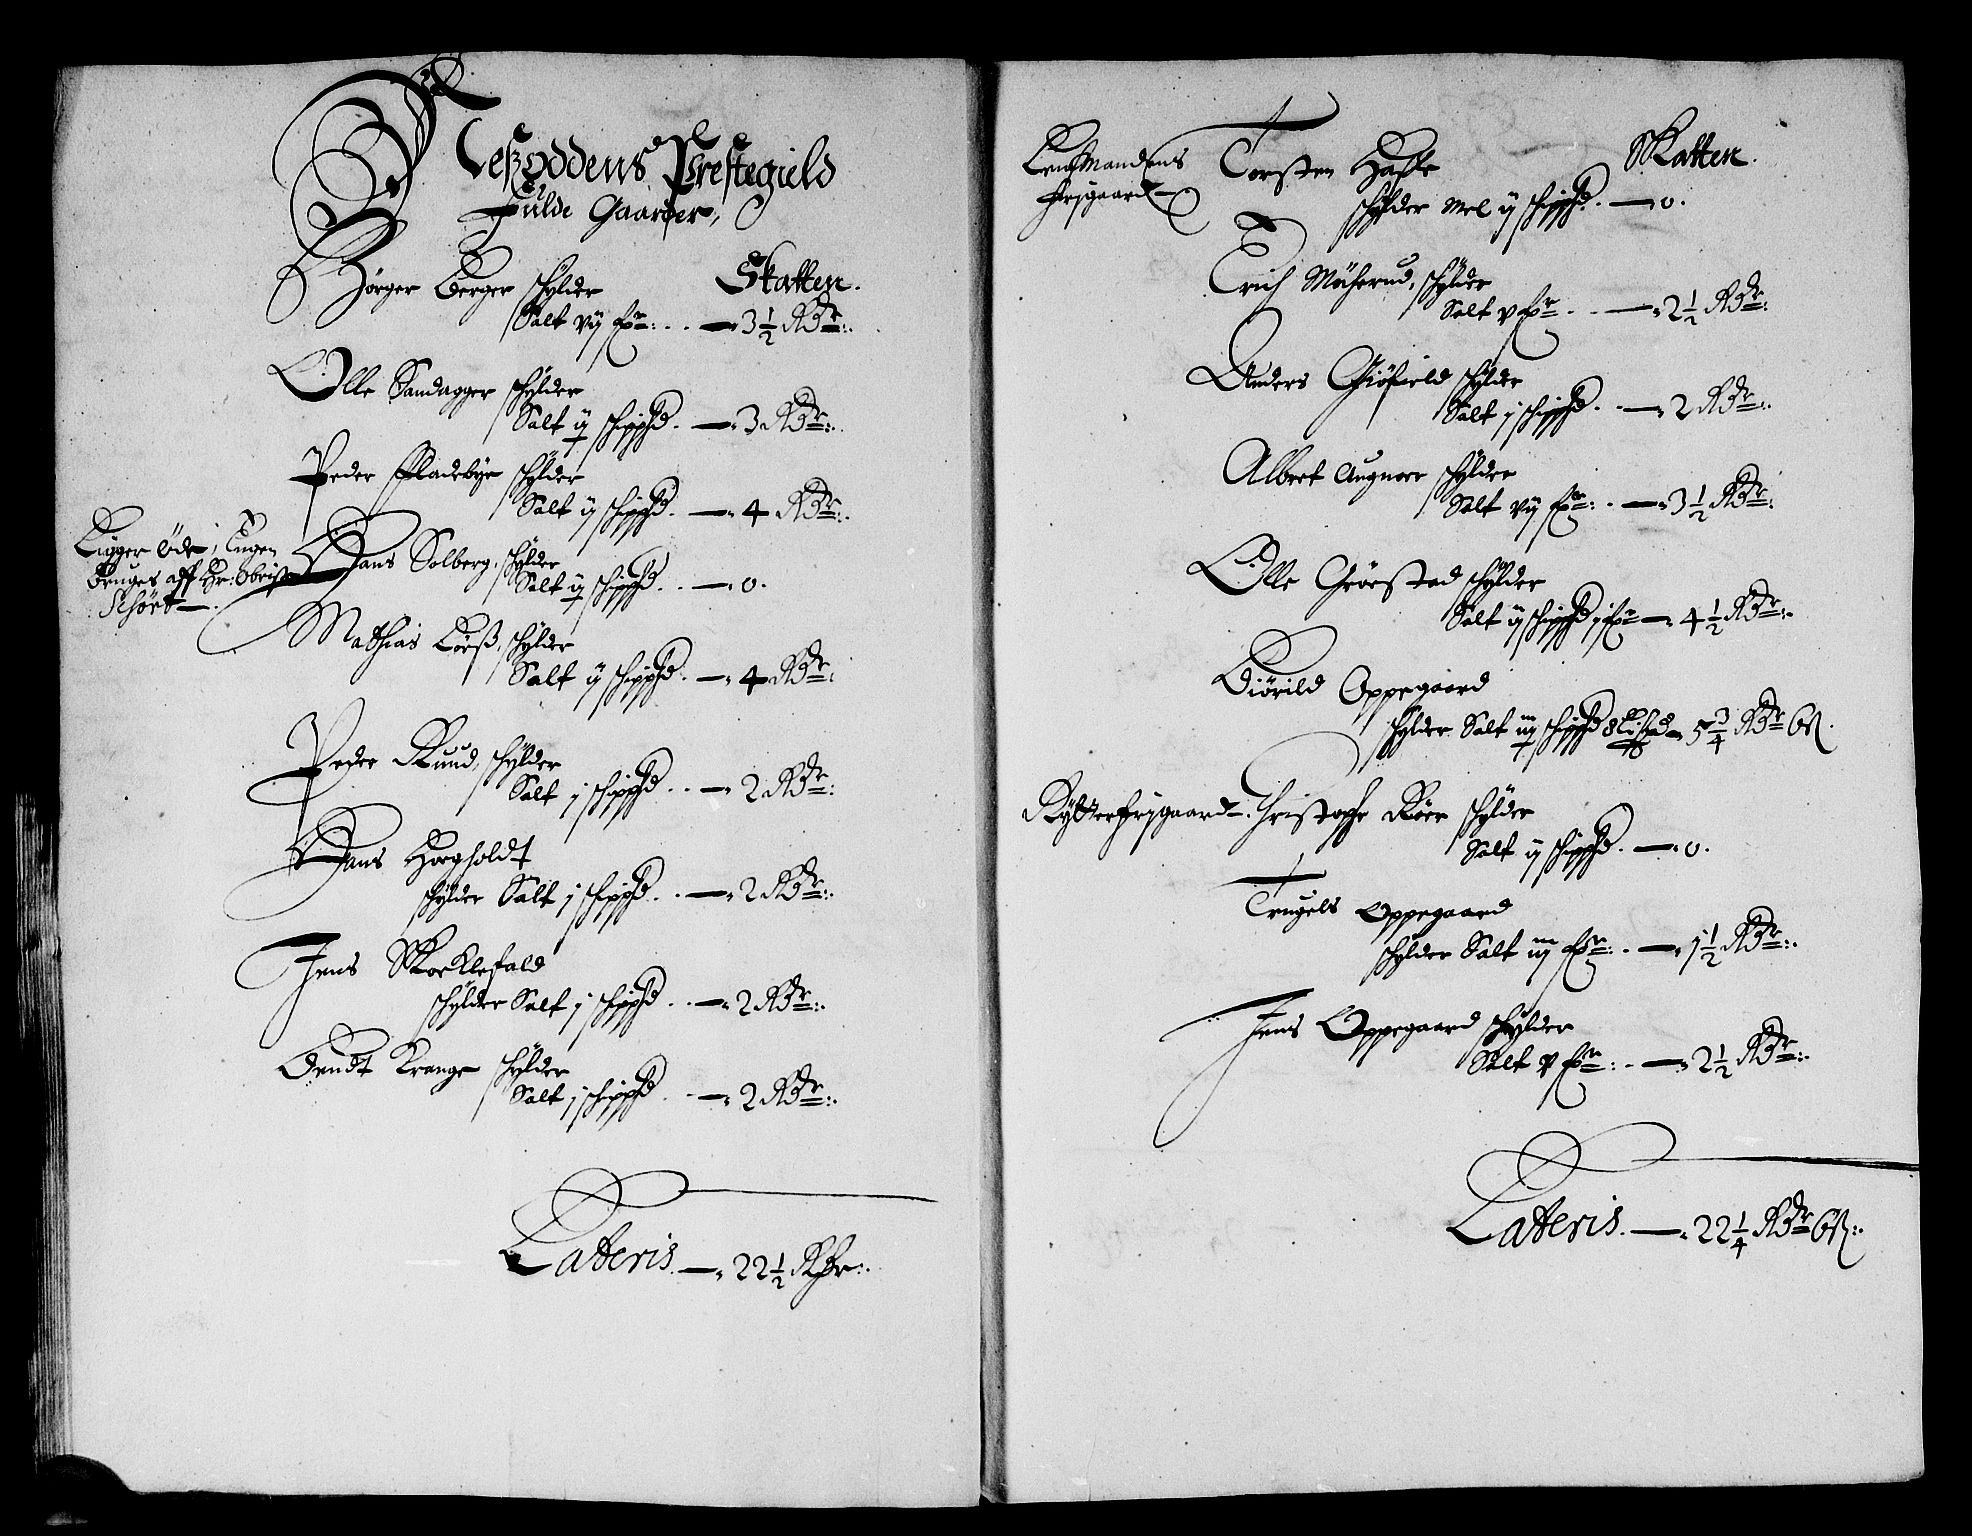 Neßoddens Prestegield
Fulde Gaarder,
Skatten.
Børger Berger schylder
Salt vij fr: . . — 3½ Rdr:
Olle Sandagger schylder
Salt ij schippd. — 3 Rdr:
Peder Fladebye schylder
Salt ij schippd. — 4 Rdr:
Ligger øde, Engen
bruges aff Hr: Obrist
Hans Solberg, schylder
Salt ij schippd . . — 0.
Mathias schylder
Salt ij schippd. — 4 Rdr:
Peder Ruud, schylder
Salt j schippd . . — 2 Rdr:
Hans Horgholdt
schylder Salt j schippd . . — 2 Rdr:
Jens Skoklefald
schylder Salt j schippd . . — 2 Rdr:
Bendt Krange schylder
Salt j schippd . . — 2 Rdr:
Latteris — 22½ Rdr:
Lensmandens
frjgaard
Torsten Haslle
Skatten.
schylder Mel ij schippd. — 0.
Erich schylder
Salt v fr . . — 2½ Rdr:
Anders Giøfield schylder
Salt j schippd . . — 2 Rdr:
Albret Augnoer schylder
Salt vij fr: . — 3½ Rdr:
Olle Grøestad schylder
Salt ij schippd j fr — 4½ Rdr:
Biørild Oppegaard
schylder Salt iij schippd 8 Lispd — 5¾ Rdr 6 ß.
Rytterfrjgaard. Christopher Roer schylder
Salt ij schippd. — 0.
Trugels Oppegaard
schylder Salt iij fr: . — 1½ Rdr:
Jens Oppegaard schylder
Salt v fr: . — 2½ Rdr:
Latteris. — 22¼ Rdr 6 ß: